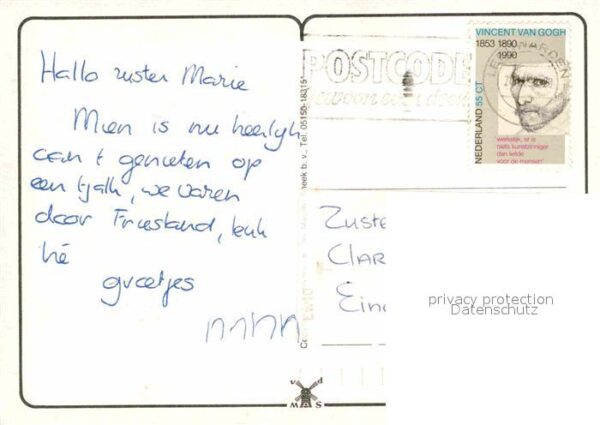 Hallo zuster Marie
Mien is nu heerlijk
aan 't genieten op
een tjalk, we varen
door Friesland, leuk
hè
groetjes
VINCENT VAN GOGH
1853 1890
1990
NEDERLAND 55 CT
werkelijk, er is
niets kunstzinniger
dan liefde
voor de mensen'
POSTCODE
gewoon even doen
Tel. 05150-18315
Zuste
Clar
Eind
privacy protection
Datenschutz